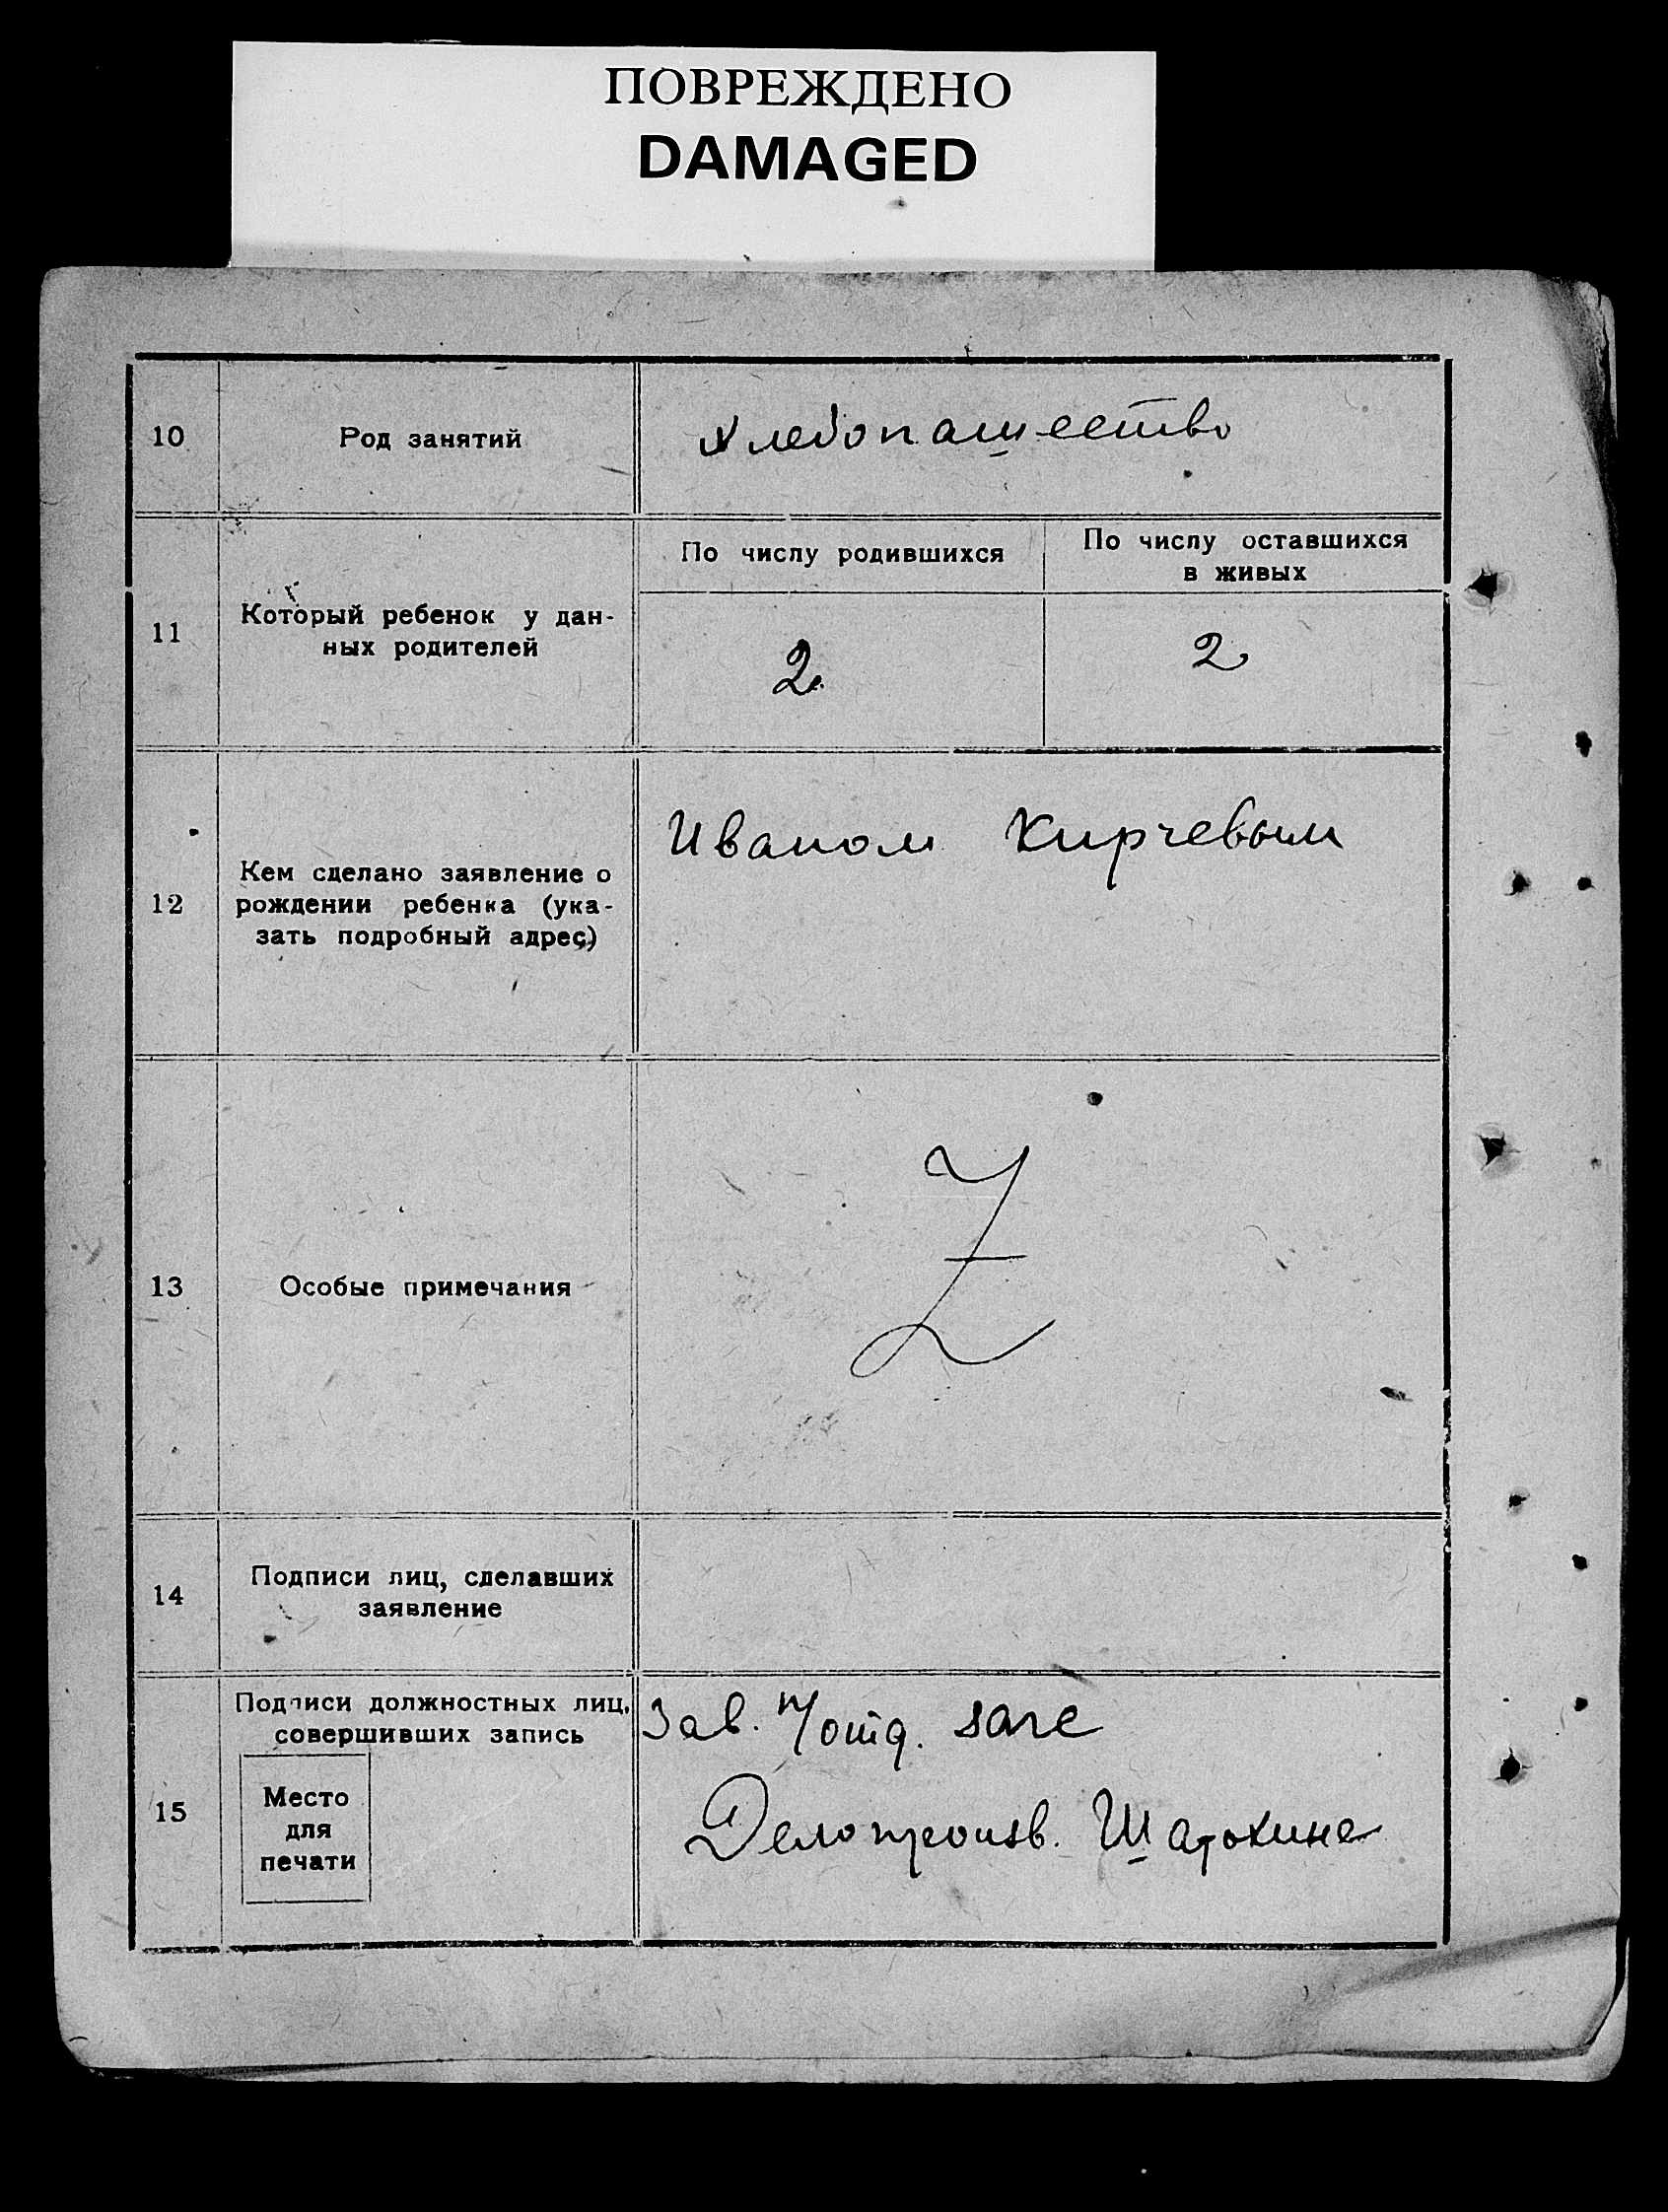 ПОВРЕЖДЕНО
DAMAGED
10
Род занятий
Хлебопашество
11
Который ребенок у дан-
ных родителей
По числу родившихся
2
По числу оставшихся
в живых
2
12
Кем сделано заявление о
рождении ребенка (ука-
зать подробный адрес)
Иваном Кирчевым
13
Особые примечания
Z
14
Подписи лиц, сделавших
заявление
15
Подписи должностных лиц,
совершивших запись
Место
для
печати
Зав. п/отд.
Делопроизв.